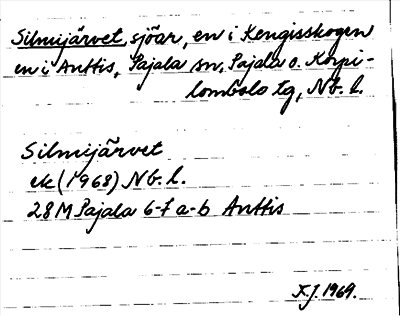 Silmijärvet, sjöar, en i Kengisskogen
en i Anttis, Pajala sn, Pajala o. Korpi-
lombolo tg, Nb. l.
Silmijärvet
ek (1968) Nb. l.
28M Pajala 6-7 a-b Anttis
K.J. 1969.